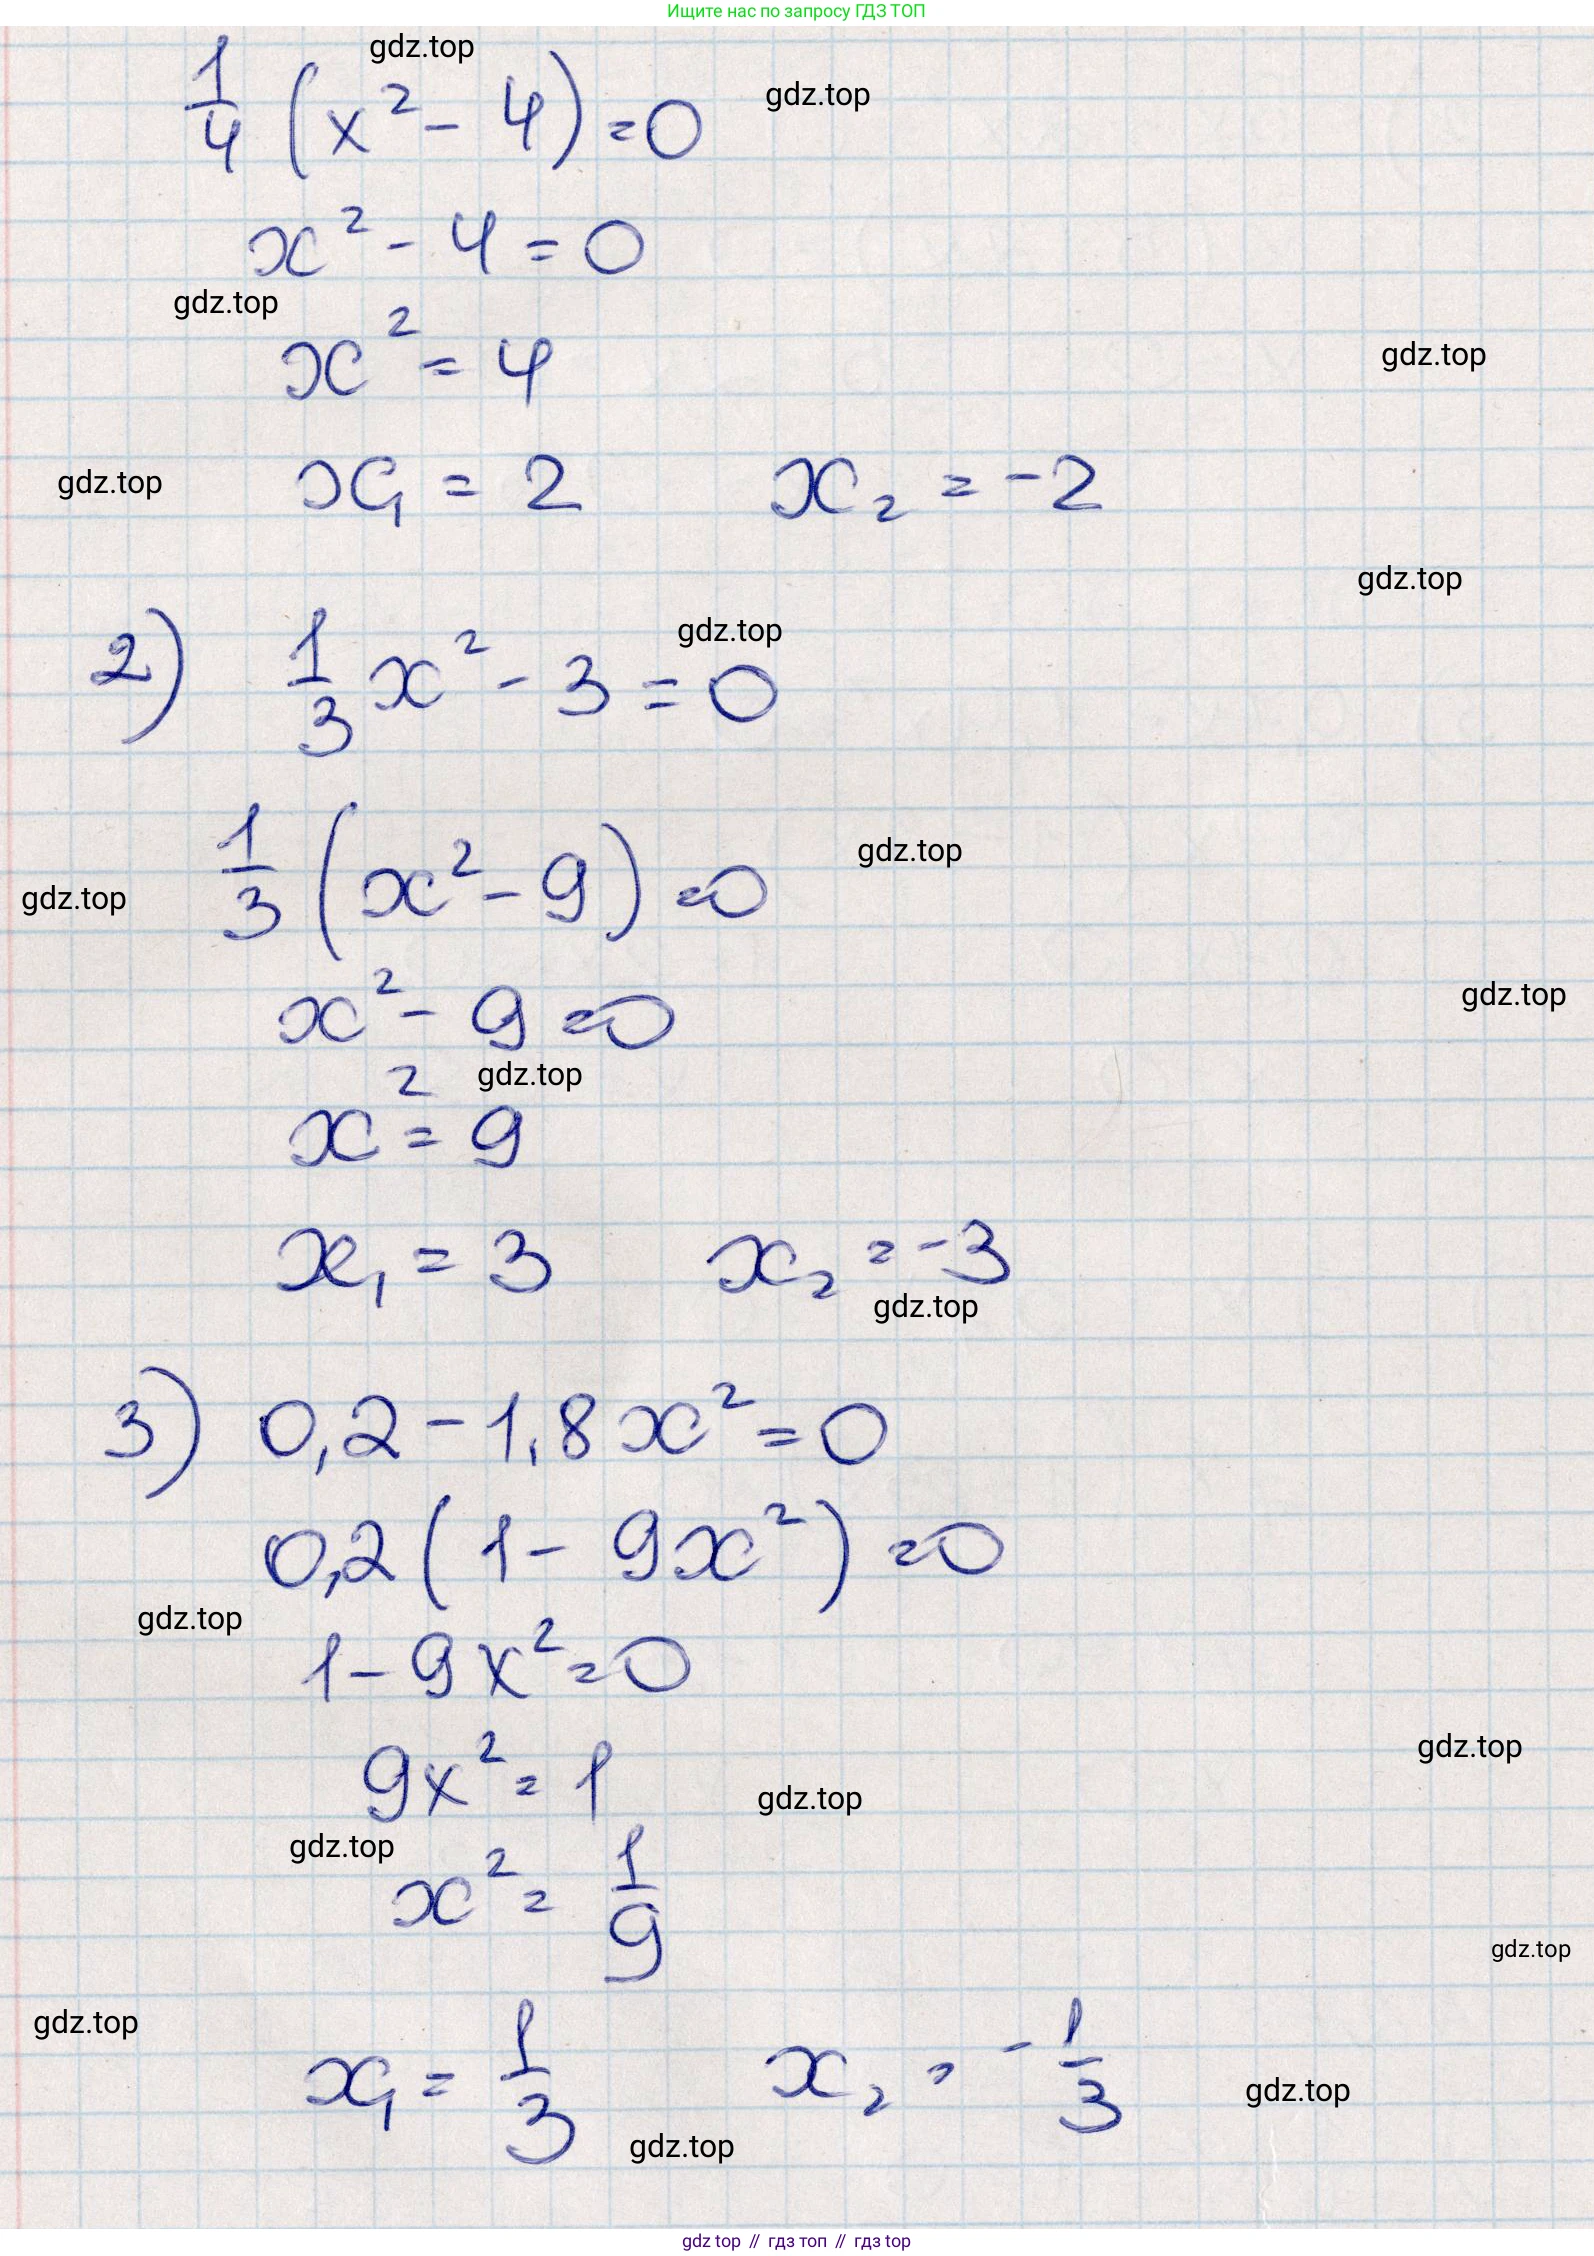 Ищите нас по запросу ГДЗ ТОП
gdz.top
1/4 (x² - 4) = 0
gdz.top
x² - 4 = 0
gdz.top
x² = 4
gdz.top
gdz.top
x₁ = 2 x₂ = -2
gdz.top
2) 1/3 x² - 3 = 0
gdz.top
1/3 (x² - 9) = 0
gdz.top
gdz.top
x² - 9 = 0
gdz.top
gdz.top
x² = 9
x₁ = 3 x₂ = -3
gdz.top
3) 0,2 - 1,8x² = 0
0,2 (1 - 9x²) = 0
gdz.top
1 - 9x² = 0
gdz.top
9x² = 1
gdz.top
gdz.top
x² = 1/9
gdz.top
gdz.top
x₁ = 1/3 x₂ = - 1/3
gdz.top
gdz.top
gdz top // гдз топ // гдз top